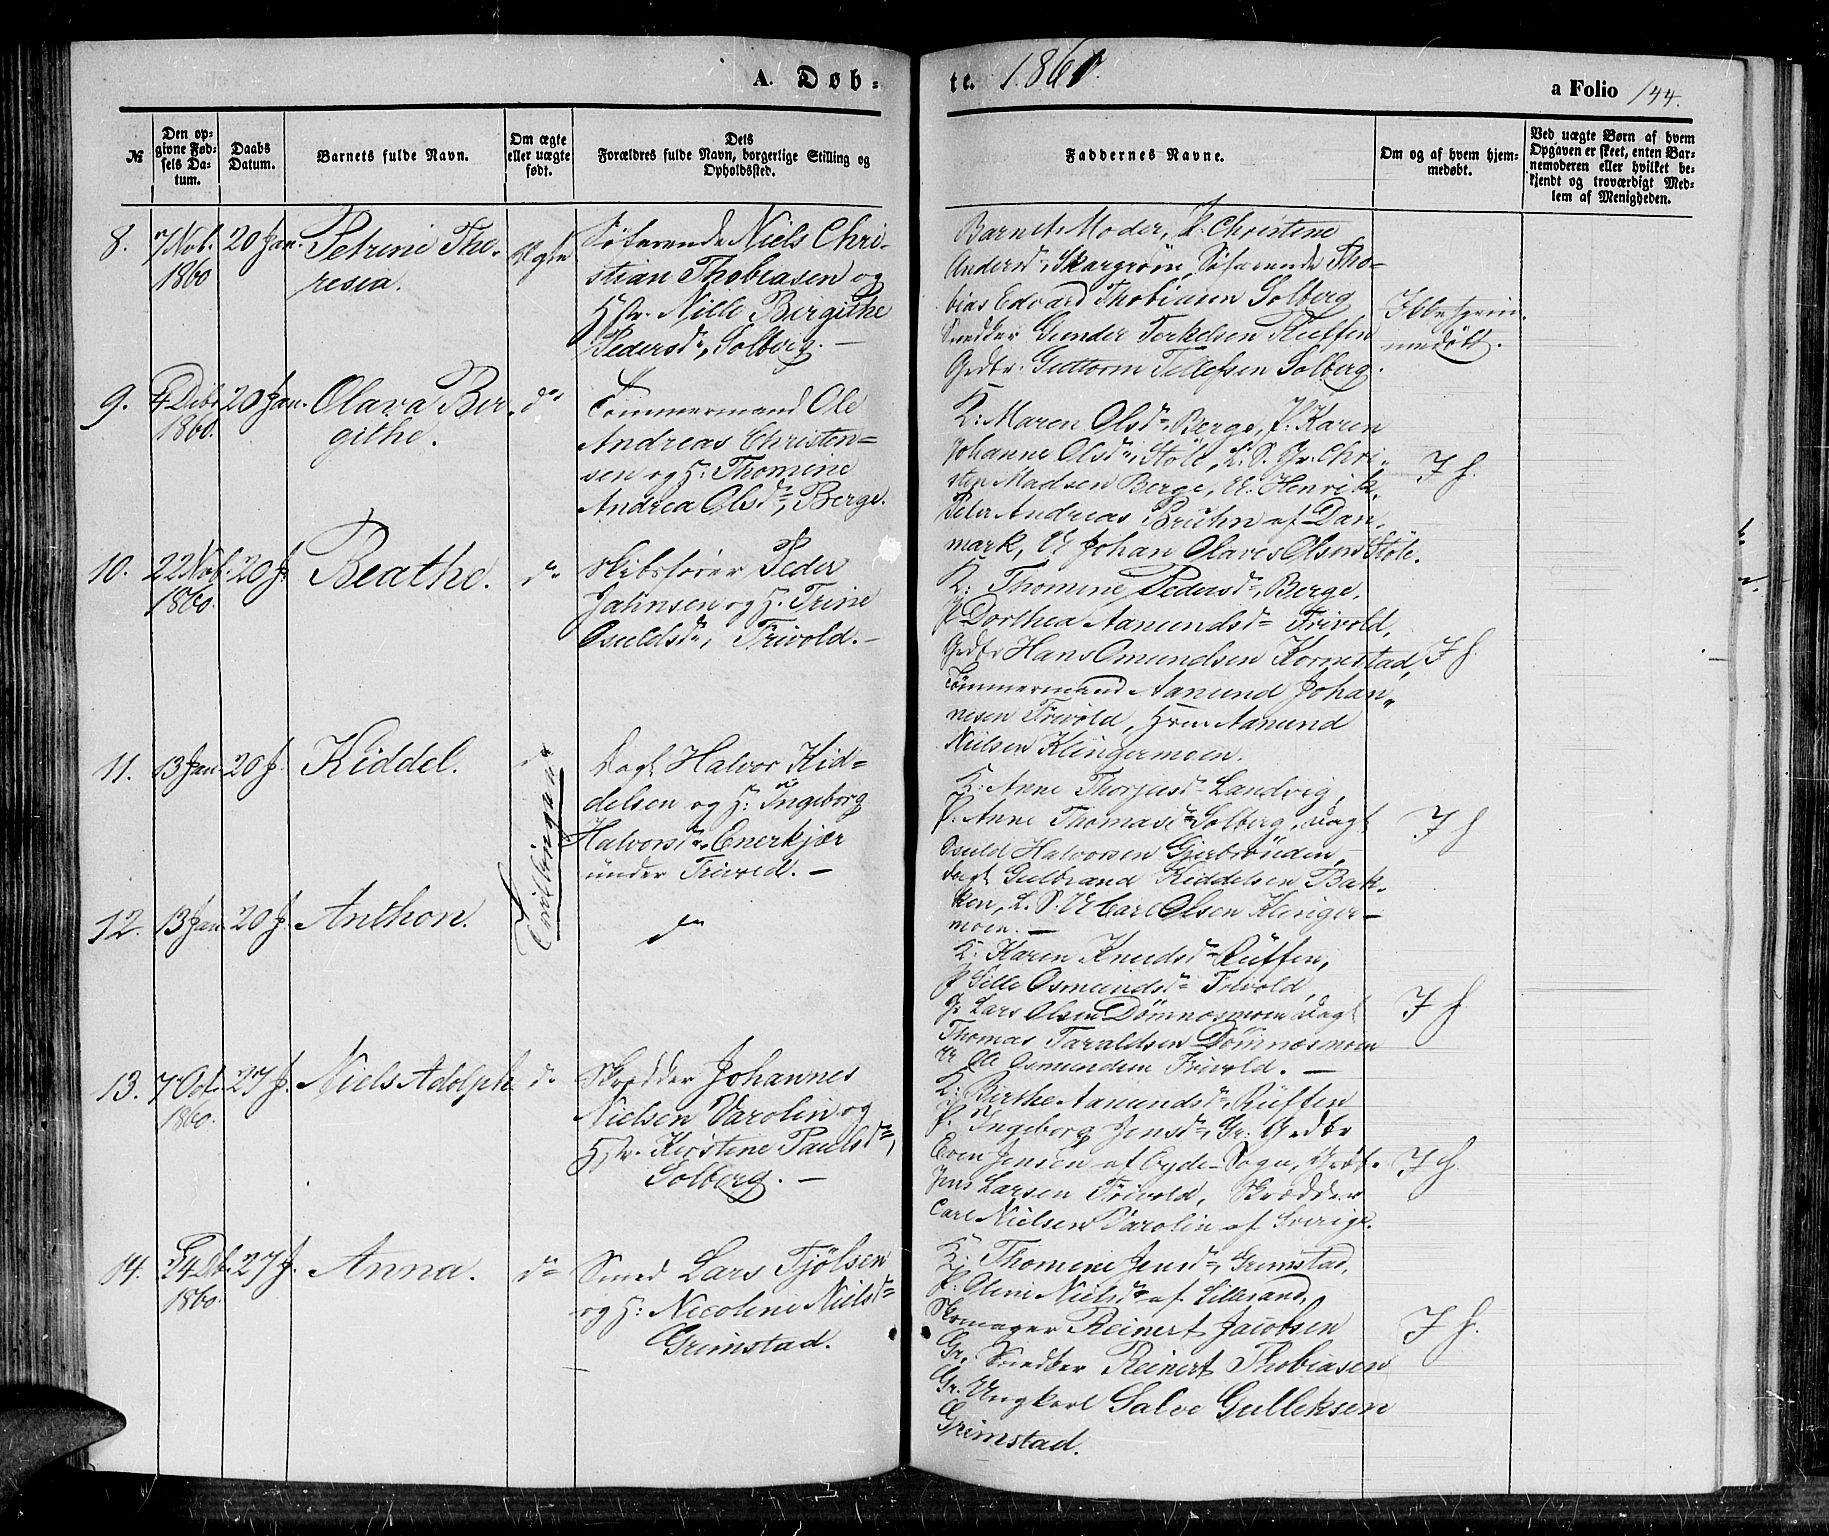 A. Døb-
te. 1861.
a Folio 144.
№
Den op-
givne Fød-
sels Da-
tum.
Daabs
Datum.
Barnets fulde Navn.
Om ægte
eller uægte
født.
Dets
Forældres fulde Navn, borgerlige Stilling og
Opholdssted.
Faddernes Navne.
Om og af hvem hjem-
medøbt.
Ved uægte Børn af hvem
Opgaven er skeet, enten Bar-
nemoderen eller hvilket be-
kjendt og troværdigt Med-
lem af Menigheden.
8. 7 Nov. 20 Jan. Petrine The-
1860 resia.
Ægte
Søfarende Niels Chri-
stian Thobiasen og
Hstr. Nille Birgithe
Pedersdr, Solberg. —
Barnets Moder, P. Christine
Andersdr, Skargrøm, Søfarende Tho-
bias Edvard Thobiasen Solberg
Snedker Gunder Terkelsen Ruffen
Grdbr. Guttorm Tellefsen Solberg.
Ikke hjem-
medøbt.
9. 4 Debr 20 Jan. Olava Bir-
1860. githe.
do
Tømmermand Ole
Andreas Christen-
sen og H. Thomine
Andrea Olsdr, Berge.
K: Maren Olsdr, Berge, P. Karen
Johanne Olsdr, Støle, L. S. Gr. Chri-
sten Madsen Berge, U. Henrik
Peter Andreas Bruhn af Dan-
mark, U Johan Olaves Olsen Støle.
I h.
10. 22 Nov. 20 J. Beathe.
1860.
do
Skibsfører Peder
Jahnsen og H. Trine
Osuldsdr, Trivold. —
K: Thomine Pedersdr, Berge,
P Dorthea Aamundsdr Frivold,
Grdbr Hans Omundsen Kornestad,
Tømmermand Aamund Johan-
nesen Frivold, Hrm Aamund
Nielsen Klingermoen.
I h.
11. 13 Jan 20 J. Kiddel.
do
Tvillingpar
Dagl Halvor Kid-
delsen og H. Ingeborg
Halvorsdr. Enerkjær
under Trivold. —
K: Anne Thorjusdr Landvig,
P. Anne Thomasdr Solberg, Dagl
Osuld Halvorsen Gjerbrønden,
Dagl Gulbrand Kiddelsen Bak-
ken, L. S. U Carl Olsen Klinger-
moen. —
I h
12. 13 Jan 20 J. Anthon.
do
K: Karen Knudsdr Rüffen,
P Sille Osmundsdr Frivold,
G. Lars Olsen Dømnesmoen Dagl
Thomas Taraldsen Dømnesmoen
U Ole Osmundsen Frivold. —
I h
13. 7 Oct. 27 J. Niels Adolph
1860.
do
Skrædder Johannes
Nielsen Varolin og
Hstr. Kirstine Paulsdr,
Solberg. —
K: Birthe Aamundsdr, Rüffen
P. Ingeborg Jensdr, Gr. Grdbr
Even Jensen af Øyde-Sogn, Grdb.
Jens Larsen Frivold, Skrædder
Carl Nielsen Varolin af Sverige.
I h.
14. 24 Db. 27 J. Anna.
1860.
do
Smed Lars Tjølsen
og H: Nicoline Nielsdr
Grimstad.
K: Thomine Jensdr, Grimstad,
P. Oline Nielsdr af Lillesand,
Skomager Reinert Jacobsen
Gr. Snedker Reinert Thobiasen
Gr. Ungkarl Salve Gulleksen
Grimstad.
I h.